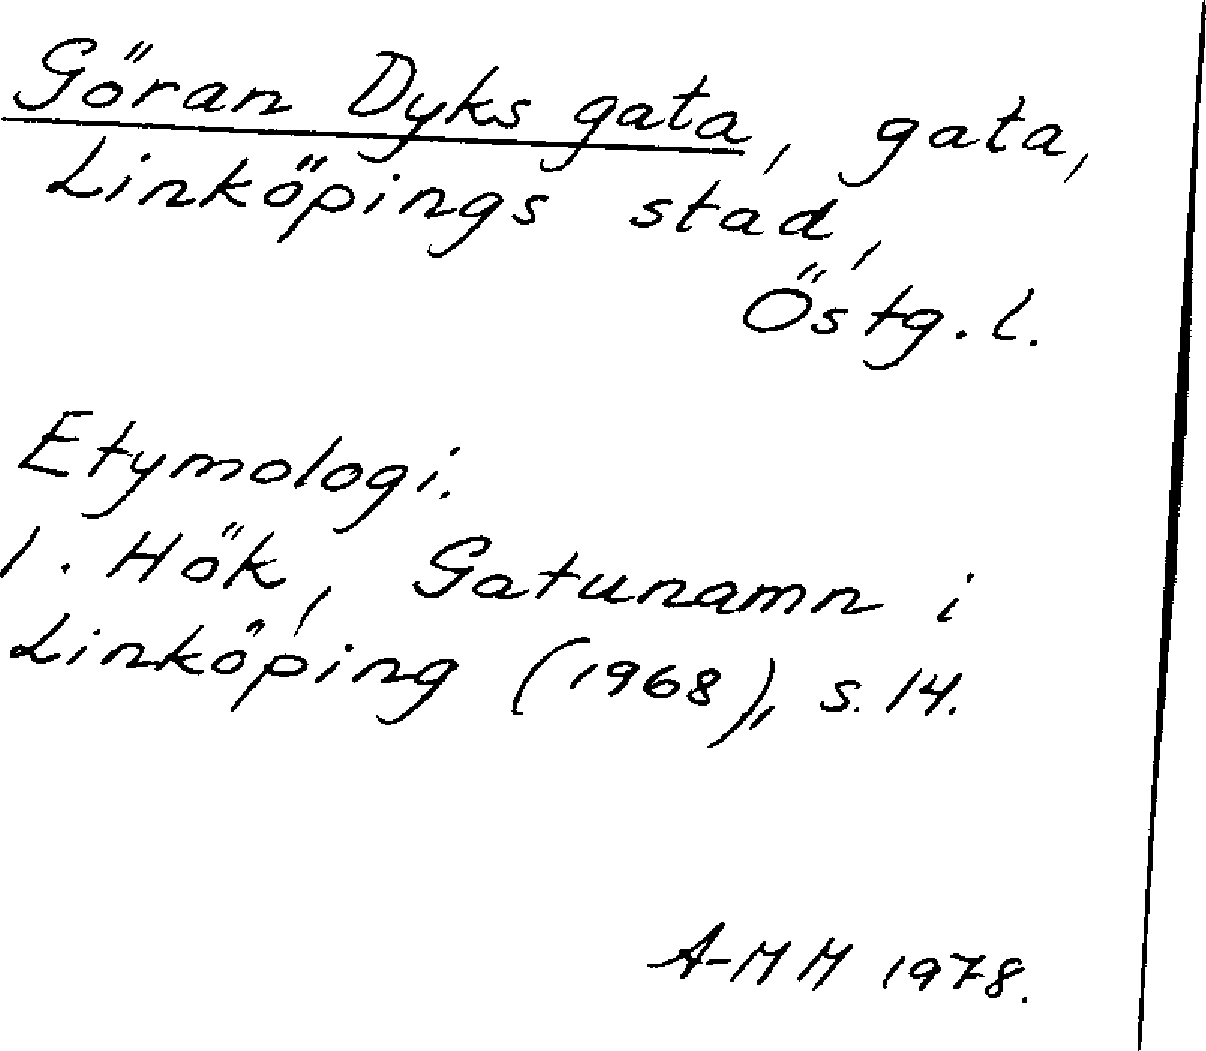 Göran Dyks gata, gata,
Linköpings stad,
Östg. l.
Etymologi.
I. Hök, Gatunamn i
Linköping (1968), s. 14.
A-MM 1978.